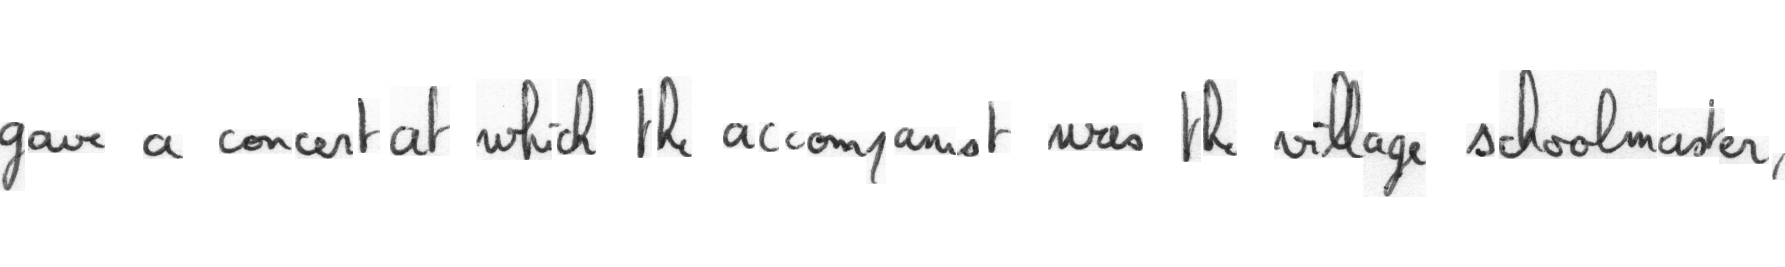 gave a concert at which the accompanist was the village schoolmaster,